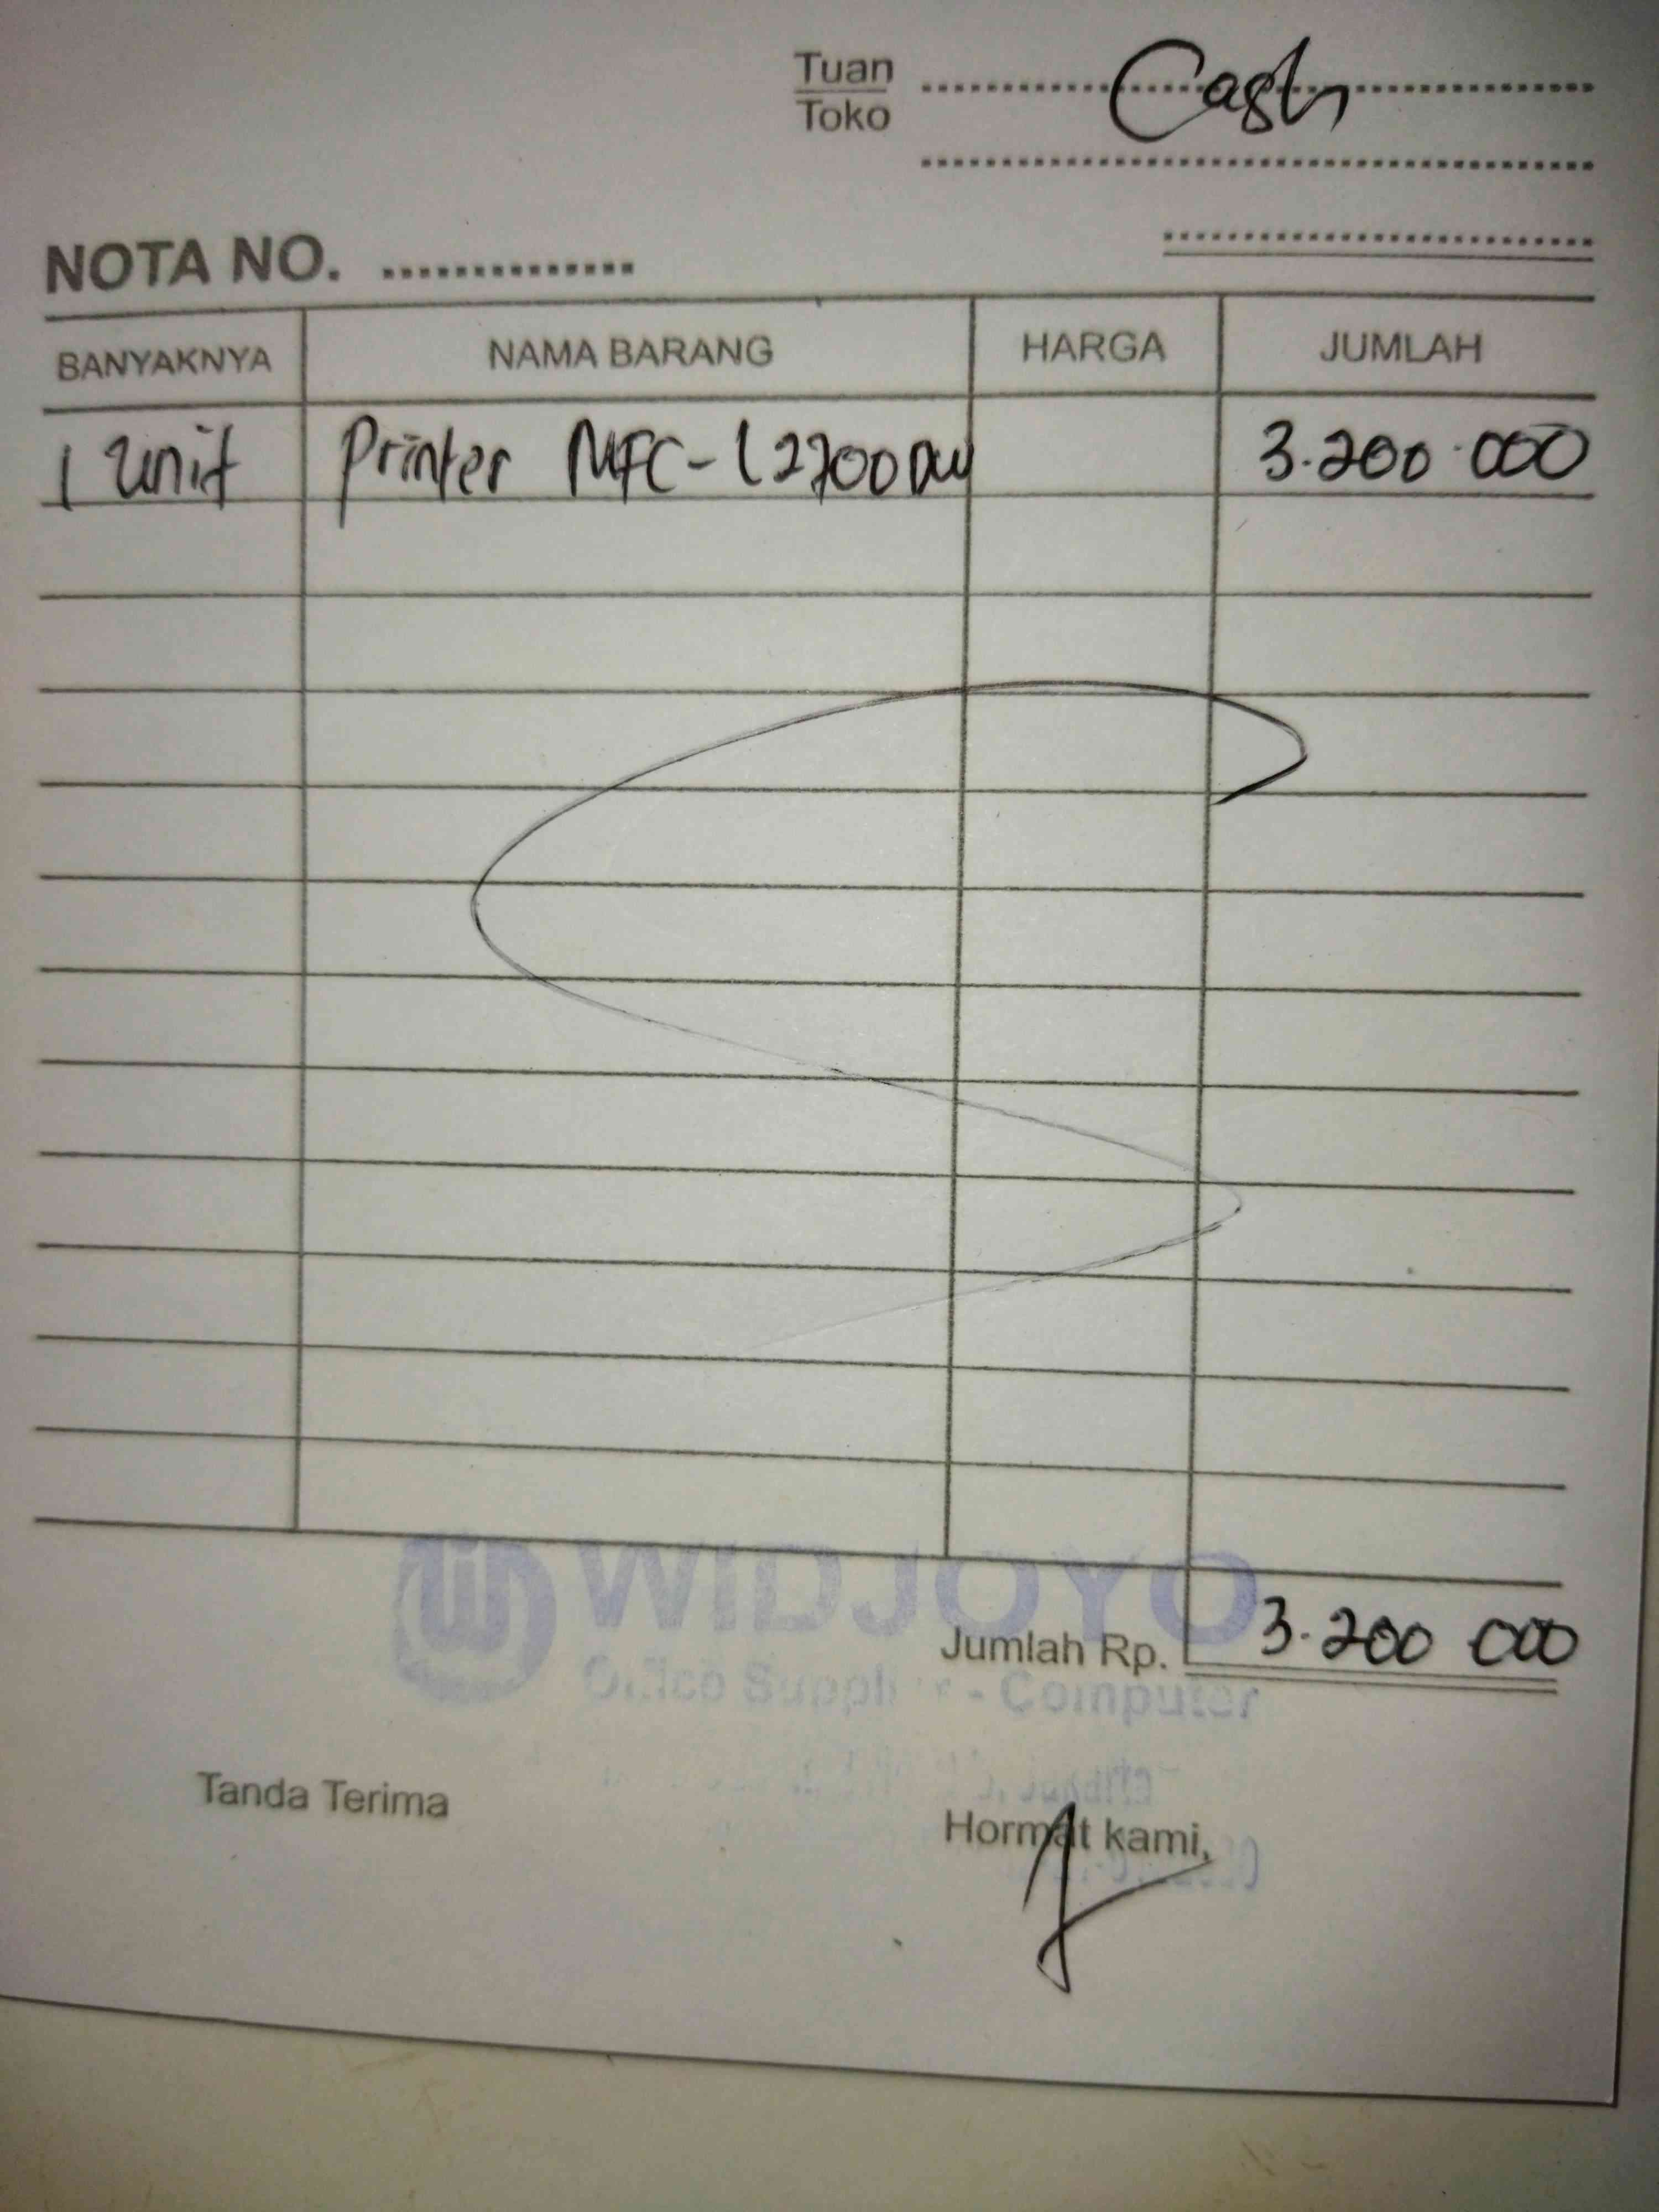 Tuan Cash
Toko
NOTA NO. ..............
BANYAKNYA NAMA BARANG HARGA JUMLAH
1 Unit Printer MFC-L2700DW 3.200.000
WIDJOYO
Jumlah Rp. 3.200 000
Computer
Tanda Terima
Hormat kami,